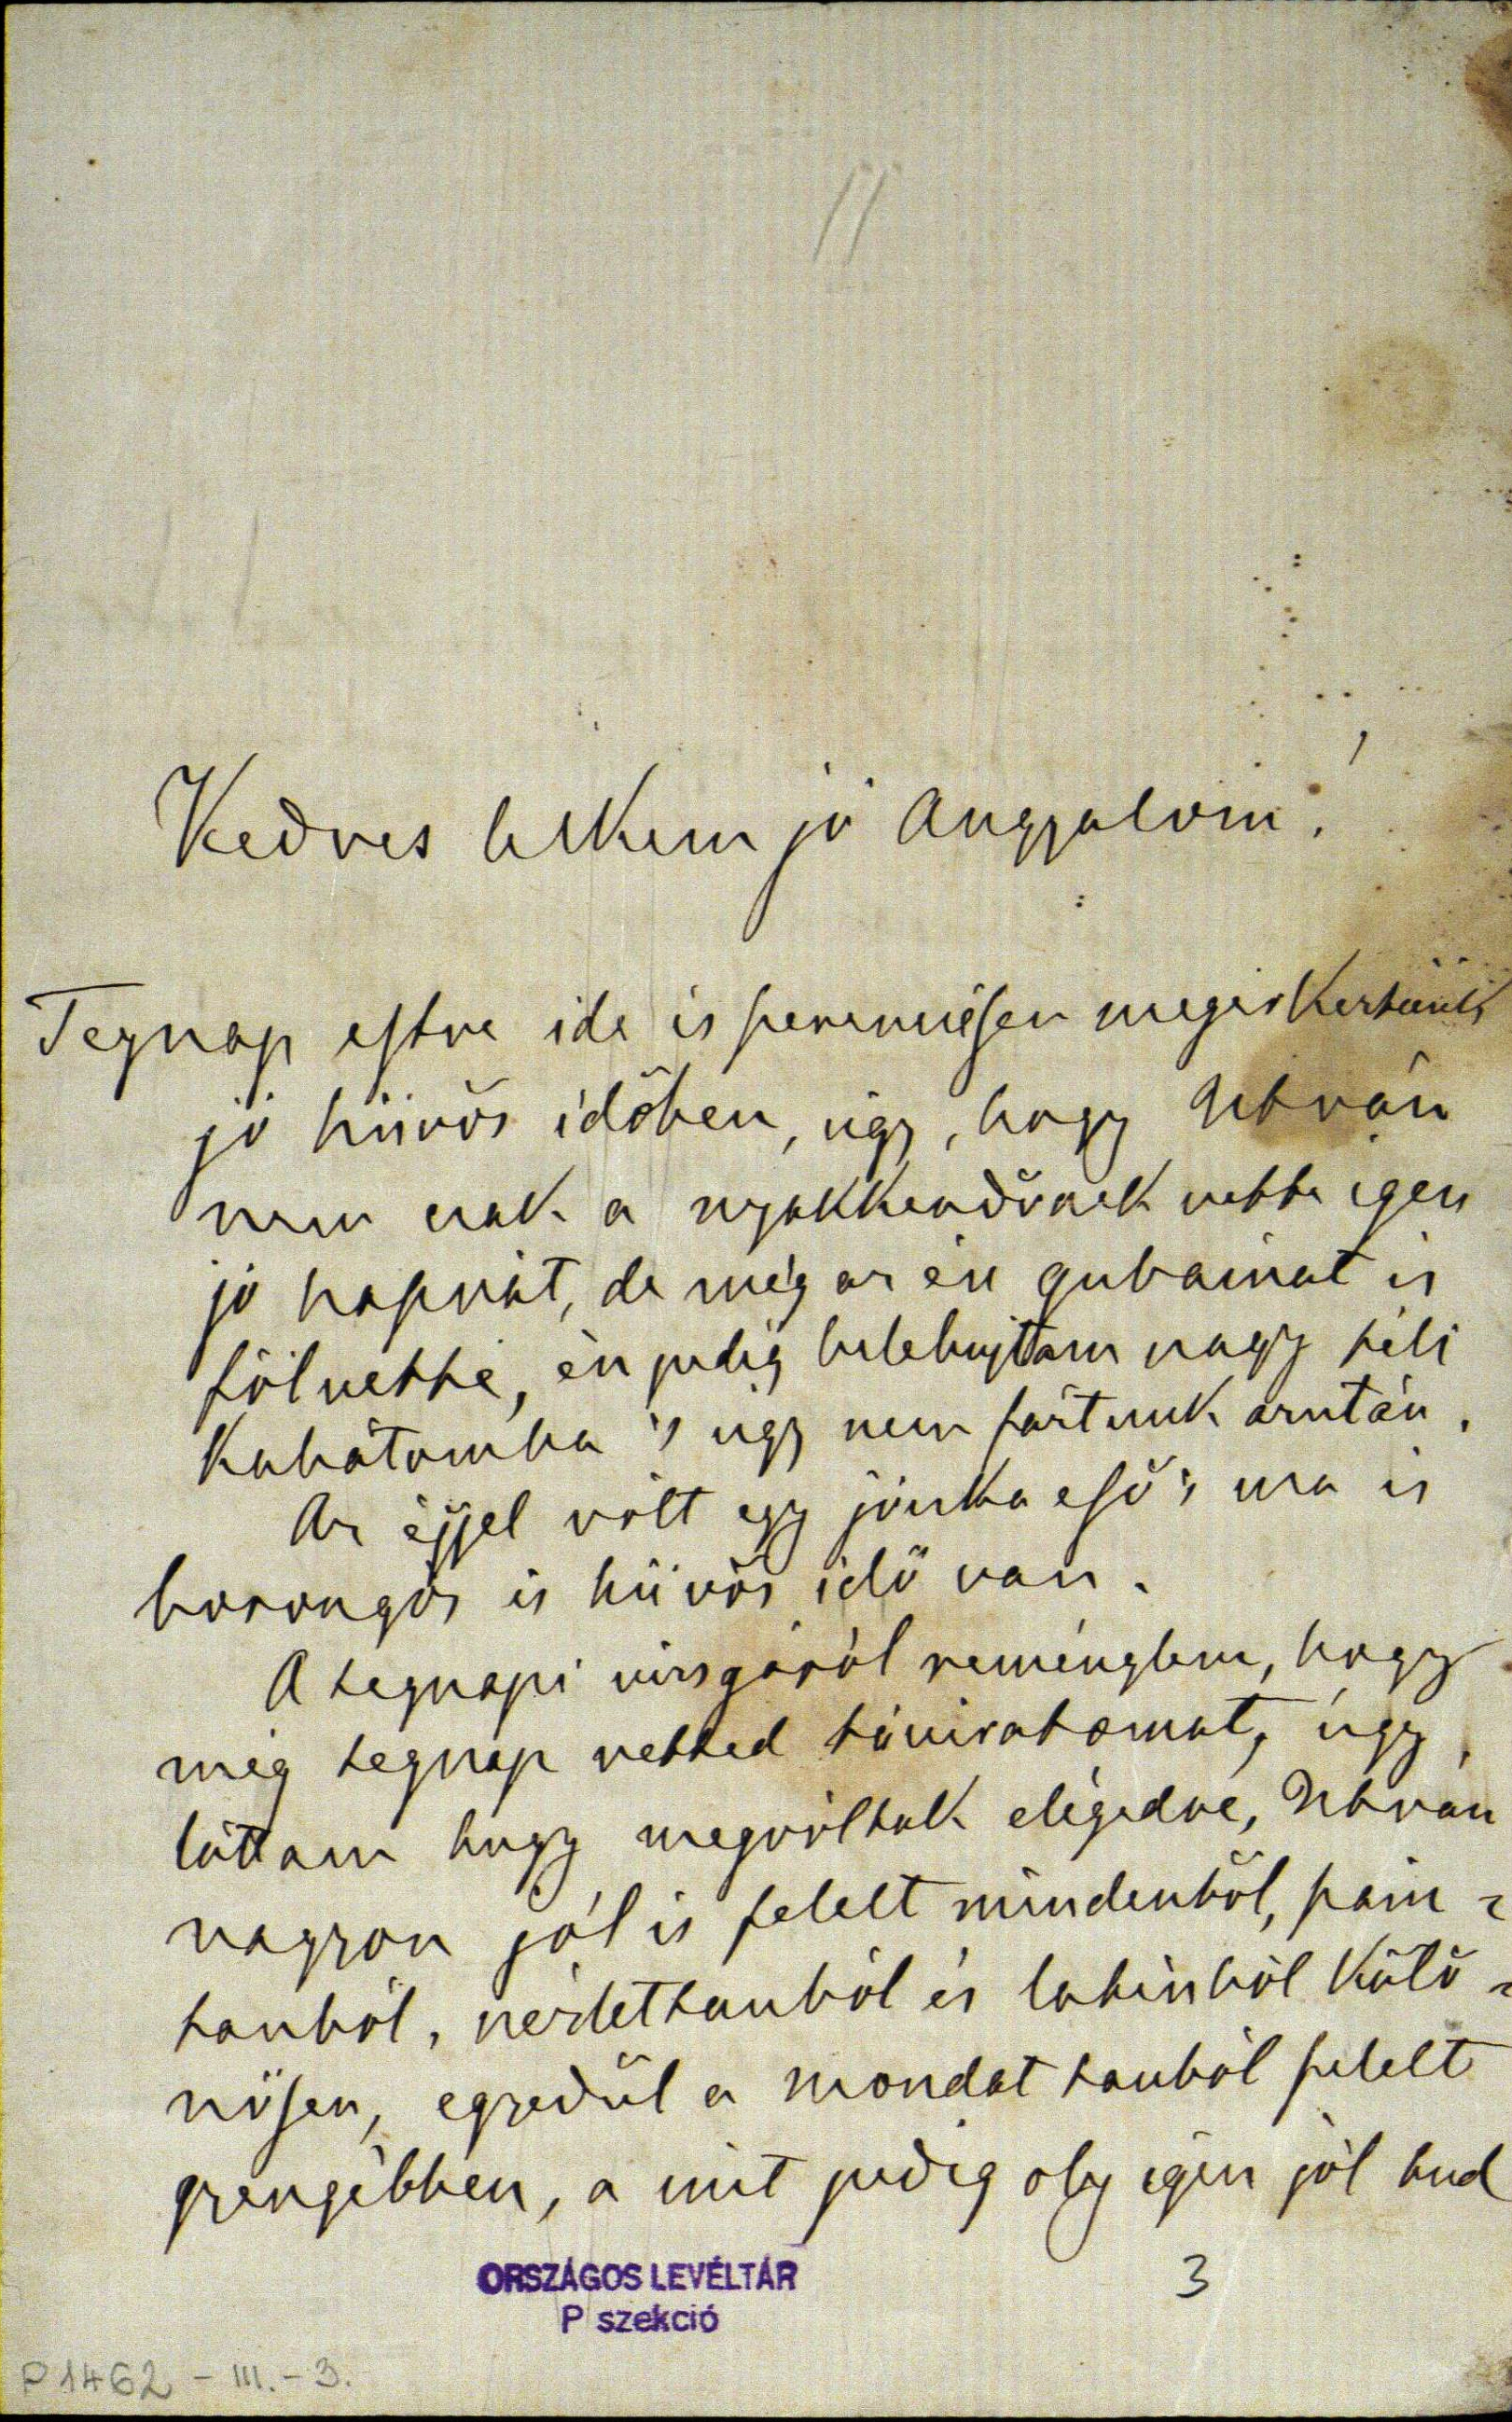 11
Kedves lelkem jó Angyalom!
Tegnap estve ide is szerencsésen megérkeztünk
jó hüvös időben, úgy, hogy István
nem csak a nyakkendőnek vette igen
jó hasznát, de még az én gubámat is
fölvette, én pedig belebujtam nagy téli
Kabátomba 's úgy nem fáztunk azután.
Az éjjel vólt egy jóncka eső 's ma is
borongós és hüvös idő van.
A tegnapi vizsgáról reménylem, hogy
még tegnap vetted táviratomat, úgy
láttam hogy megvóltak elégedve, István
nagyon jól is felelt mindenből, szám=
tanból, nézlettanból és latinból külö=
nösen, egyedűl a mondattanból felelt
gyengébben, a mit pedig oly igen jól tud
ORSZÁGOS LEVÉLTÁR
P szekció
3
P 1462 - III. - 3.